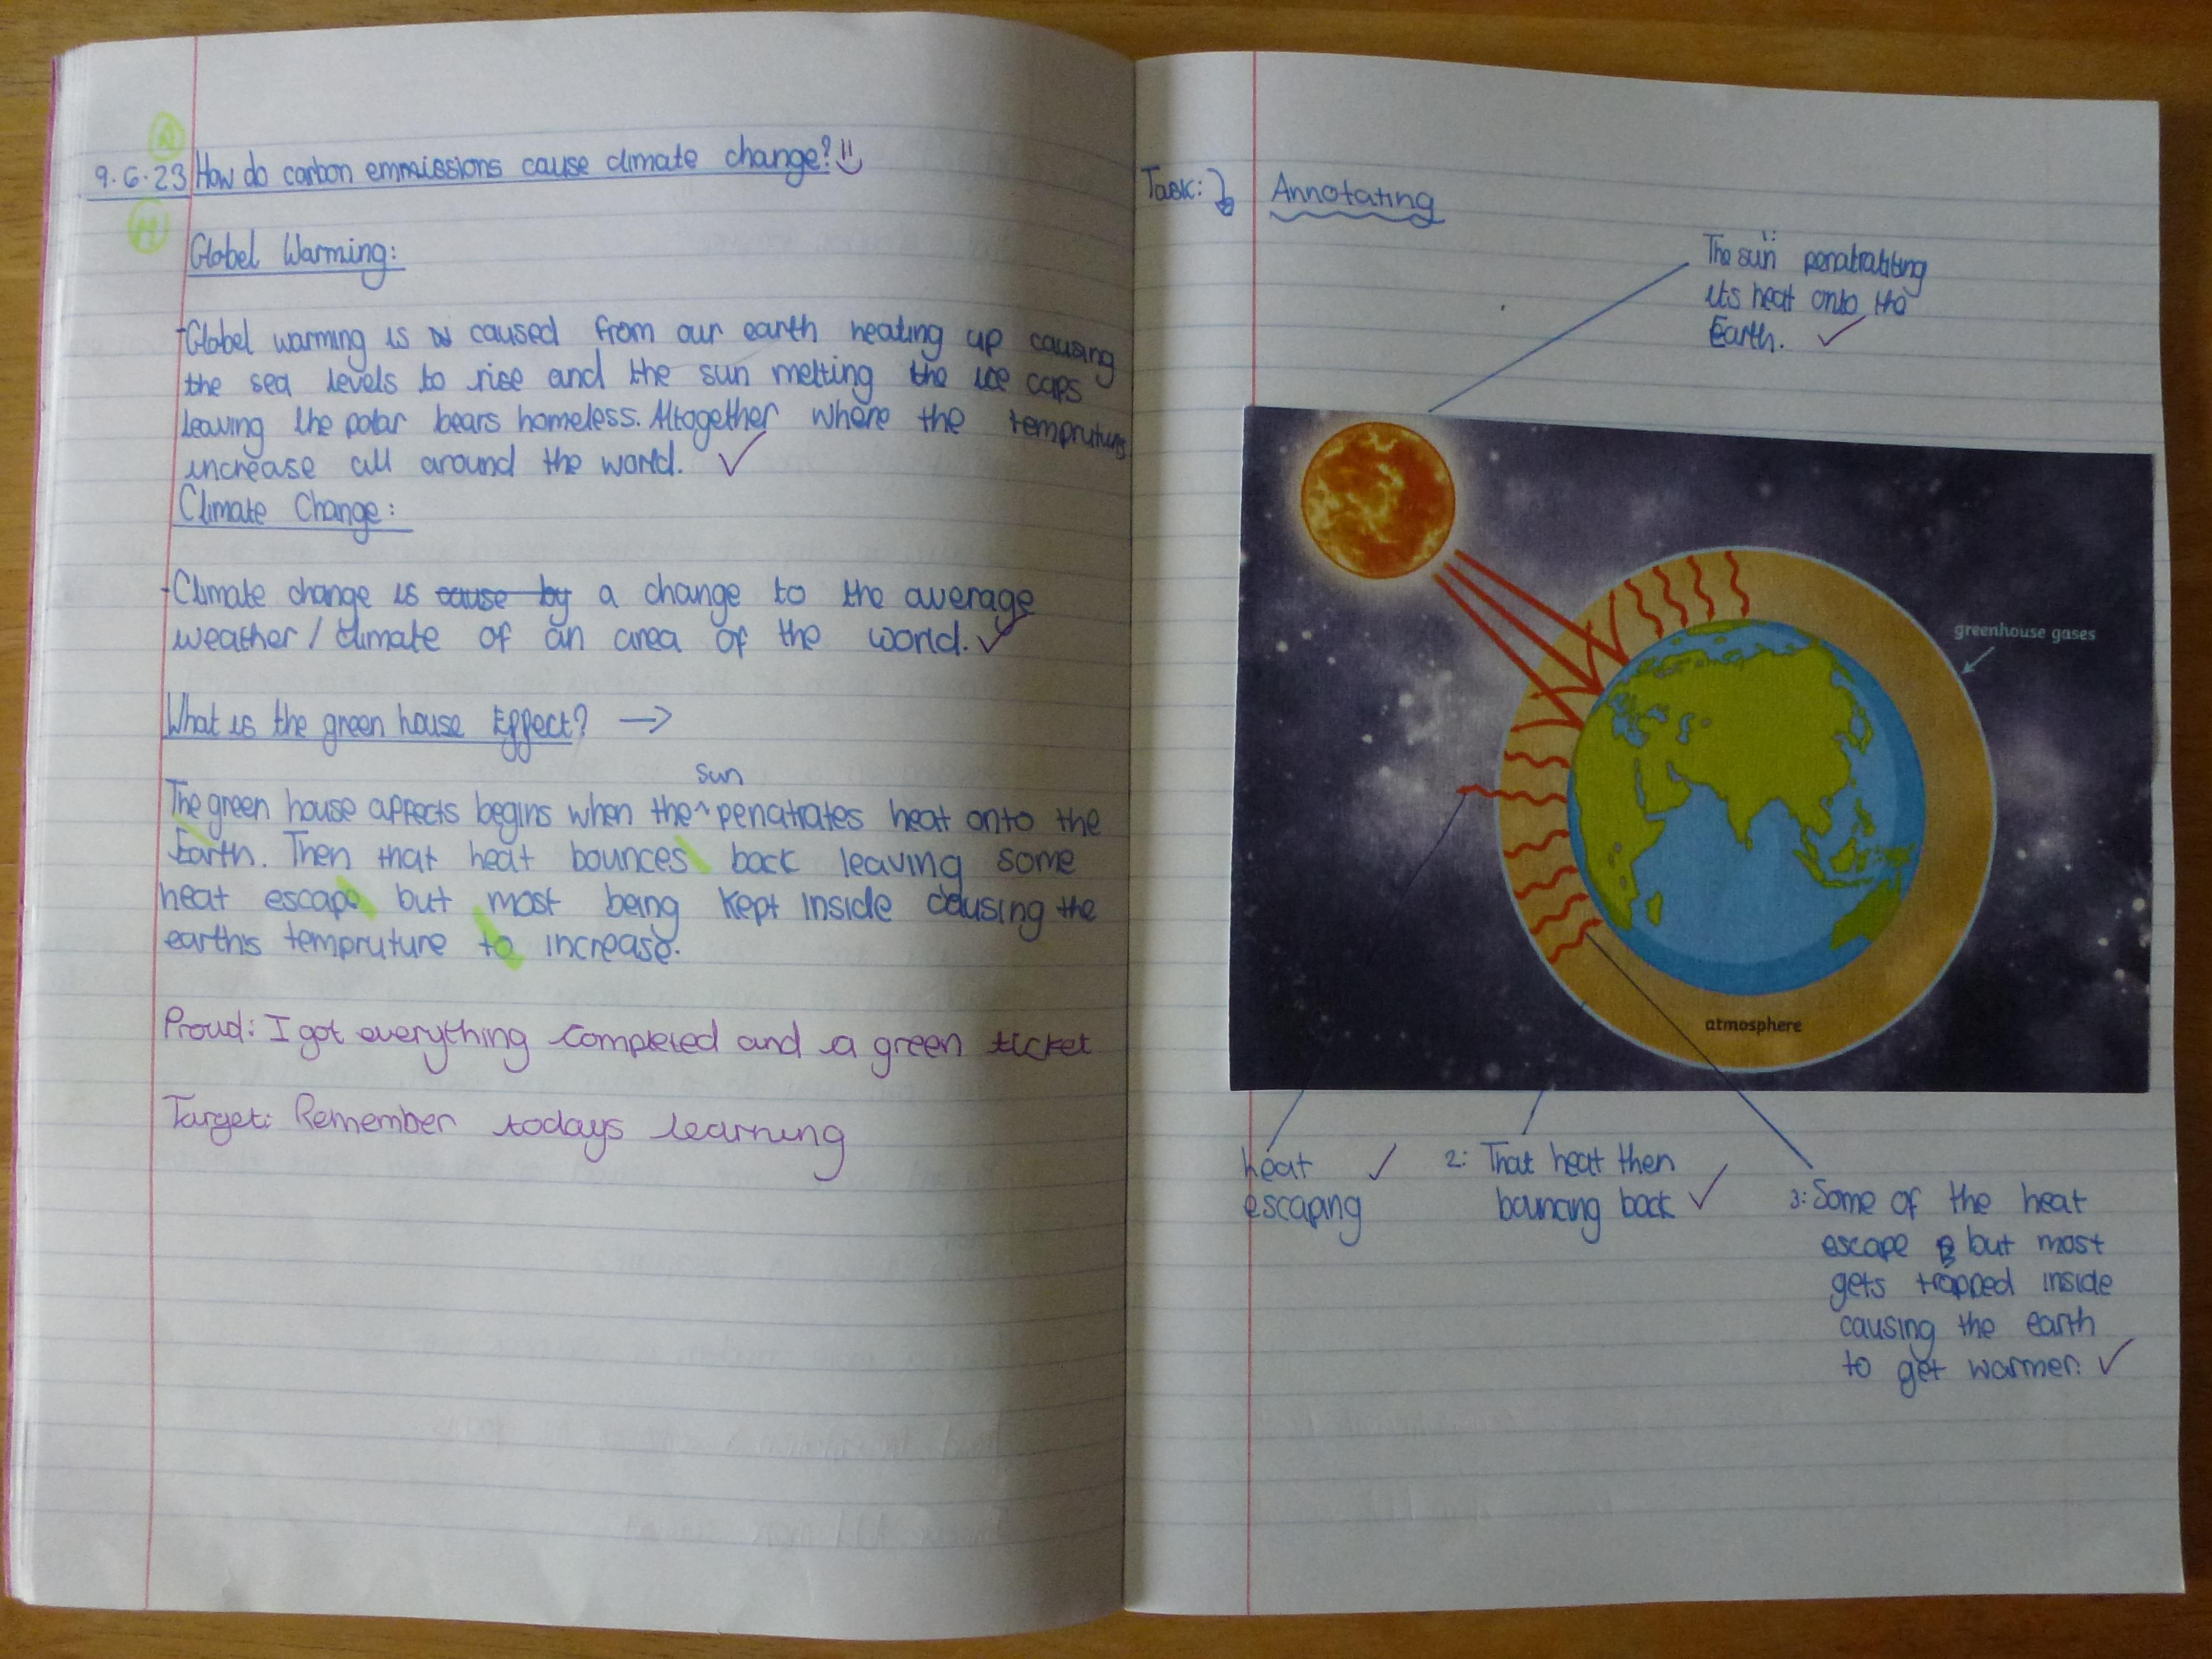 9.6.23 How do carbon emmissions cause climate change?
Globel Warming:
-Globel warming is caused from our earth heating up causing
the sea levels to rise and the sun melting the ice caps
leaving the polar bears homeless. Altogether where the tempruturs
increase all around the world.
Climate Change:
-Climate change is cause by a change to the average
weather / climate of an area of the world.
What is the green house Effect? →
sun
The green house affects begins when the^ penatrates heat onto the
Earth. Then that heat bounces back leaving some
heat escape but most being kept inside causing the
earth's tempruture to increase.
Proud: I got everything completed and a green ticket
Target: Remember todays learning
Task:
Annotating
1:
The sun penatratiting
its heat onto the
Earth.
greenhouse gases
atmosphere
heat
escaping
2: That heat then
bouncing back
3: Some of the heat
escape but most
gets trapped inside
causing the earth
to get warmer.